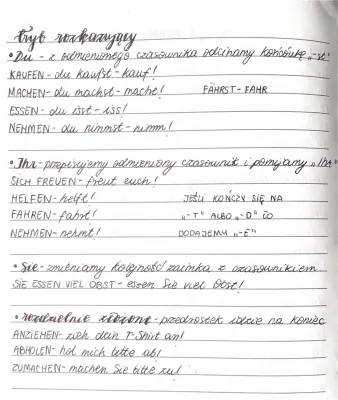 Tryb rozkazujący
• Du - z odmienionego czasownika odcinamy końcówkę „-st"
KAUFEN - du kaufst - kauf!
MACHEN - du machst - mache! FÄHRST - FAHR
ESSEN - du isst - iss!
NEHMEN - du nimmst - nimm!
• Ihr - przepisujemy odmieniony czasownik i pomijamy „Ihr"
SICH FREUEN - freut euch!
HELFEN - helft! JEŚLI KOŃCZY SIĘ NA
FAHREN - fahrt! „-T" ALBO „-D" TO
NEHMEN - nehmt! DODAJEMY „-E"
• Sie - zmieniamy kolejność zaimka z czasownikiem
SIE ESSEN VIEL OBST - essen Sie viel Obst!
• rozdzielnie złożone - przedrostek idzie na koniec
ANZIEHEN - zieh dein T-Shirt an!
ABHOLEN - hol mich bitte ab!
ZUMACHEN - machen Sie bitte zu!